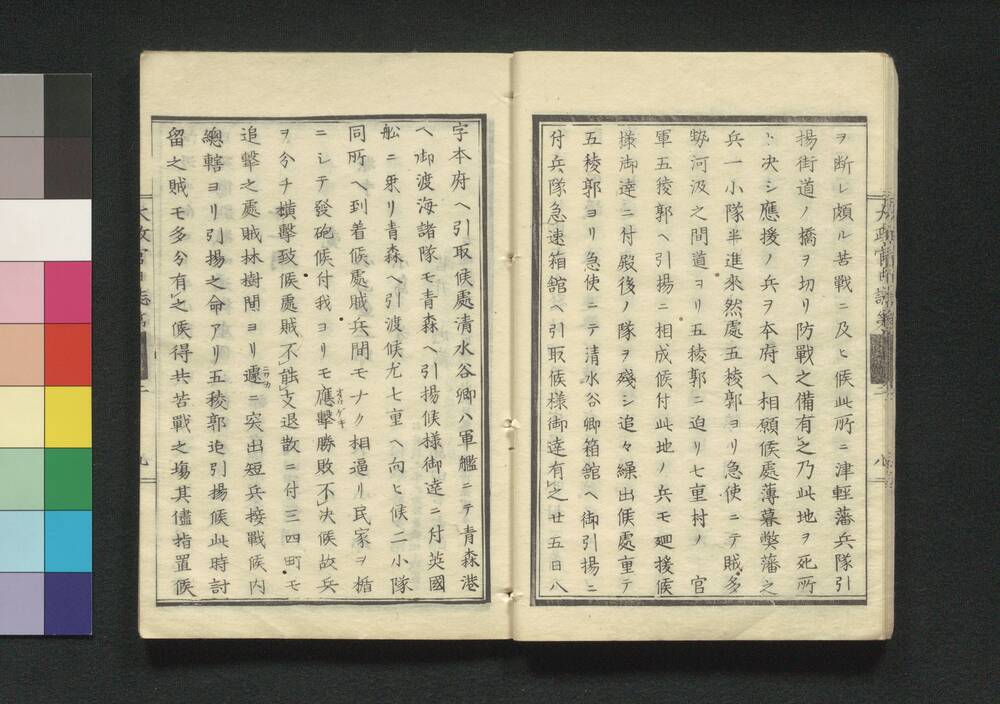 ヲ断レ頗ル苦戰ニ及ヒ候此所ニ津輕藩兵隊引
揚街道ノ橋ヲ切リ防戰之備有之乃此地ヲ死所
ト决シ應援ノ兵ヲ本府ヘ相願候處薄暮弊藩之
兵一小隊半進來然處五稜郭ヨリ急使ニテ賊多
勢河汲之間道ヨリ五稜郭ニ迫リ七重村ノ 官
軍五稜郭ヘ引揚ニ相成候付此地ノ兵モ廻援候
様御達ニ付殿後ノ隊ヲ殘シ追々繰出候處重テ
五稜郭ヨリ急使ニテ清水谷卿箱館ヘ御引揚ニ
付兵隊急速箱館ヘ引取候様御達有之廿五日八
字本府ヘ引取候處清水谷卿ハ軍艦ニテ青森港
ヘ御渡海諸隊モ青森ヘ引揚候様御達ニ付英國
舩ニ乗リ青森ヘ引渡候尤七重ヘ向ヒ候二小隊
同所ヘ到着候處賊兵間モナク相逼リ民家ヲ楯
ニシテ發砲候付我ヨリモ應擊勝敗不决候故兵
ヲ分チ横擊致候處賊不能支退散ニ付三四町モ
追擊之處賊林樹間ヨリ遽ニ突出短兵接戰候内
總轄ヨリ引揚之命アリ五稜郭迠引揚候此時討
留之賊モ多分有之候得共苦戰之塲其儘指置候